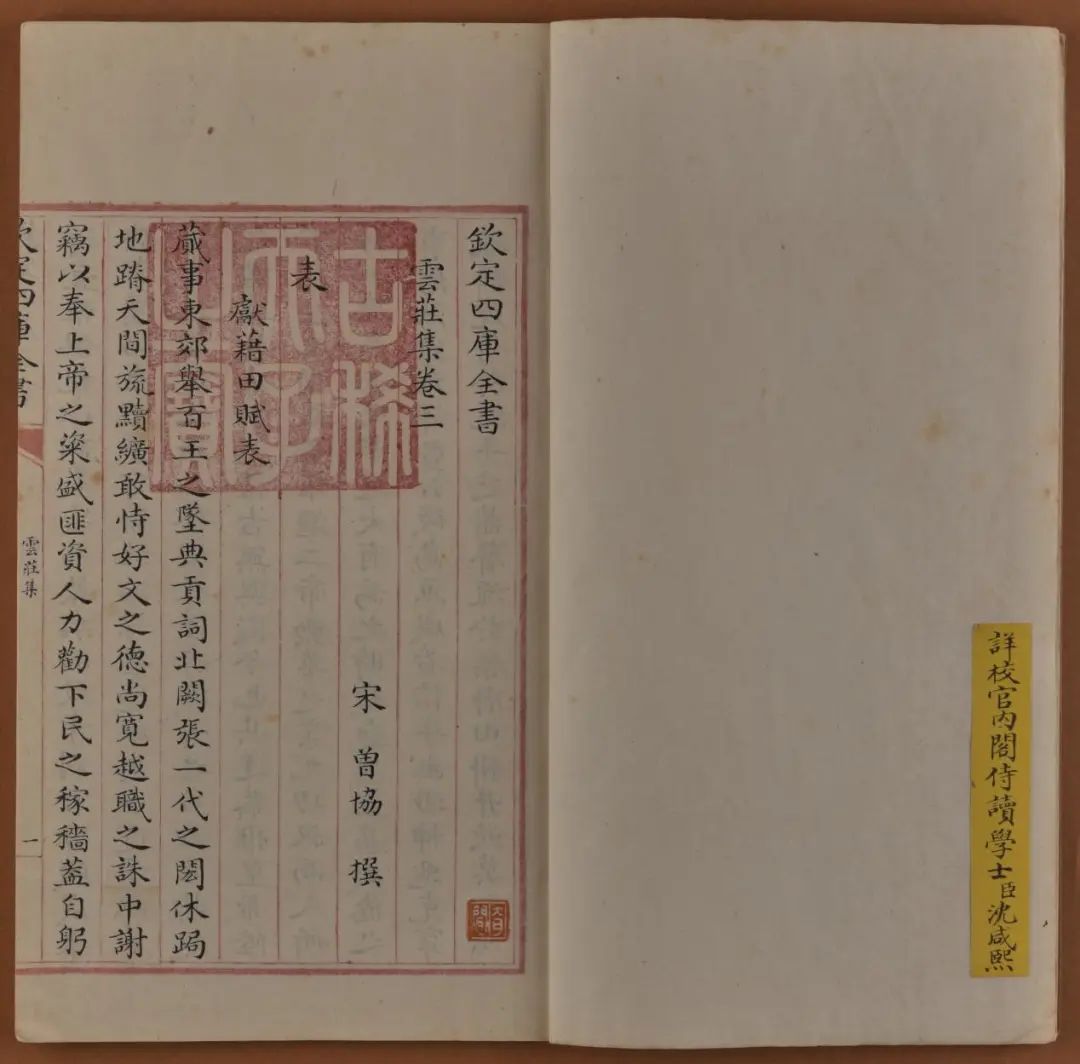 詳校官内閣侍讀學士臣沈咸熙
欽定四庫全書
雲莊集卷三
宋 曾協 撰
表
獻藉田賦表
蕆事東郊舉百王之墜典貢詞北闕張一代之閎休跼
地蹐天間旒黷纊敢恃好文之德尚寛越職之誅中謝
竊以奉上帝之粢盛匪資人力勸下民之稼穡蓋自躬
欽定四庫全書
雲莊集
一
古稀天子之寶